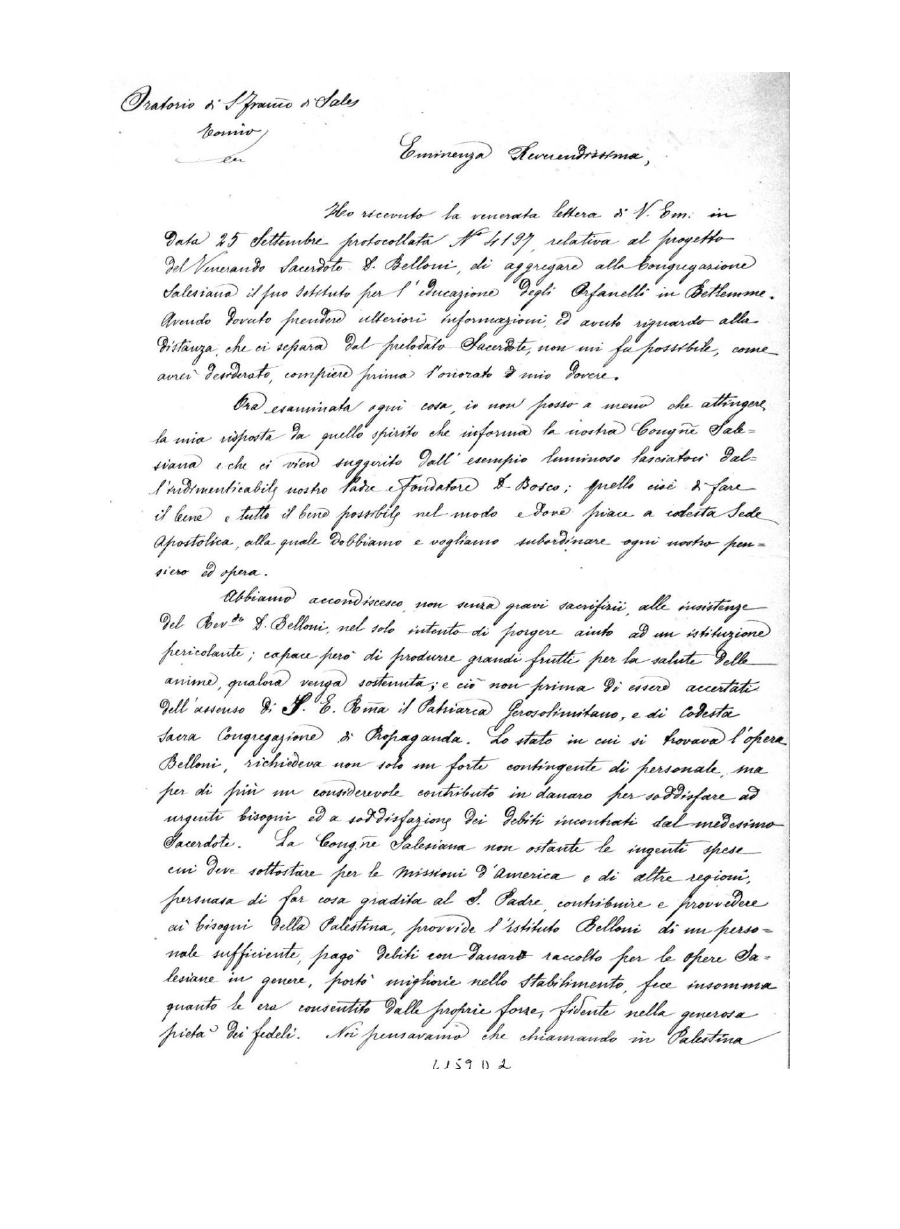 Oratorio di S. Franco di Sales
Torino
Eminenza Reverendissima,
Ho ricevuto la venerata lettera di V. Em. in
data 25 Settembre protocollata No 4197, relativa al progetto
del Venerando Sacerdote D. Belloni, di aggregare alla Congregazione
Salesiana il suo Istituto per l'educazione degli Orfanelli in Betlemme.
Avendo dovuto prendere ulteriori informazioni, ed avuto riguardo alla
distanza, che ci separa dal prelodato Sacerdote, non mi fu possibile, come
avrei desiderato, compiere prima l'onorato mio dovere.
Ora esaminata ogni cosa, io non posso a meno che attingere
la mia risposta da quello spirito che informa la nostra Congne Sale=
siana e che ci vien suggerito dall'esempio luminoso lasciatoci dal=
l'indimenticabile nostro Padre e Fondatore D. Bosco; quello cioè di fare
il bene e tutto il bene possibile nel modo e dove piace a codesta Sede
Apostolica, alla quale dobbiamo e vogliamo subordinare ogni nostro pen=
siero ed opera.
Abbiamo accondisceso, non senza gravi sacrifizii, alle insistenze
del Revdo D. Belloni, nel solo intento di porgere aiuto ad un istituzione
pericolante; capace però di produrre grandi frutti per la salute delle
anime, qualora venga sostenuta; e ciò non prima di essere accertati
dell'assenso di S. E. Rma il Patriarca Gerosolimitano, e di codesta
Sacra Congregazione di Propaganda. Lo stato in cui si trovava l'opera
Belloni, richiedeva non solo un forte contingente di personale, ma
per di più un considerevole contributo in danaro per soddisfare ad
urgenti bisogni ed a soddisfazione dei debiti incontrati dal medesimo
Sacerdote. La Congne Salesiana non ostante le ingenti spese
cui deve sottostare per le Missioni d'America e di altre regioni,
persuasa di far cosa gradita al S. Padre, contribuire e provvedere
ai bisogni della Palestina, provvide l'Istituto Belloni di un perso=
nale sufficiente, pagò debiti con danaro raccolto per le opere Sa=
lesiane in genere, portò migliorie nello Stabilimento, fece insomma
quanto le era consentito dalle proprie forze, fidente nella generosa
pietà dei fedeli. Noi pensavamo che chiamando in Palestina
4159 D 2